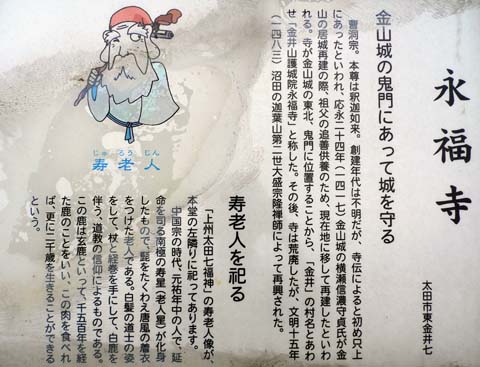 永福寺
太田市東金井七
金山城の鬼門にあって城を守る
曹洞宗。本尊は釈迦如来。創建年代は不明だが、寺伝によると初め只上
にあったといわれ、応永二十四年(一四一七)金山城の横瀬信濃守貞氏が金
山の居城再建の際、祖父の追善供養のため、現在地に移して再建したといわ
れる。寺が金山城の東北、鬼門に位置することから、「金井」の村名とあわ
せ「金井山護城院永福寺」と称した。その後、寺は荒廃したが、文明十五年
(一四八三)沼田の迦葉山第二世大盛宗隆禅師によって再興された。
寿老人を祀る
「上州太田七福神」の寿老人像が、
本堂の左隣りに祀ってあります。
中国宋の時代、元祐年中の人で、延
命を司る南極の寿星(老人星)が化身
したもので、髭をたくわえ唐風の着衣
をつけた老人である。白髪の道士の姿
をして、杖と経巻を手にして、白鹿を
伴う、道教の信仰によるものである。
この鹿は玄鹿といって、千五百年を経
た鹿のことをいい、この肉を食べれ
ば、更に二千歳を生きることができる
という。
じゅ ろう じん
寿老人